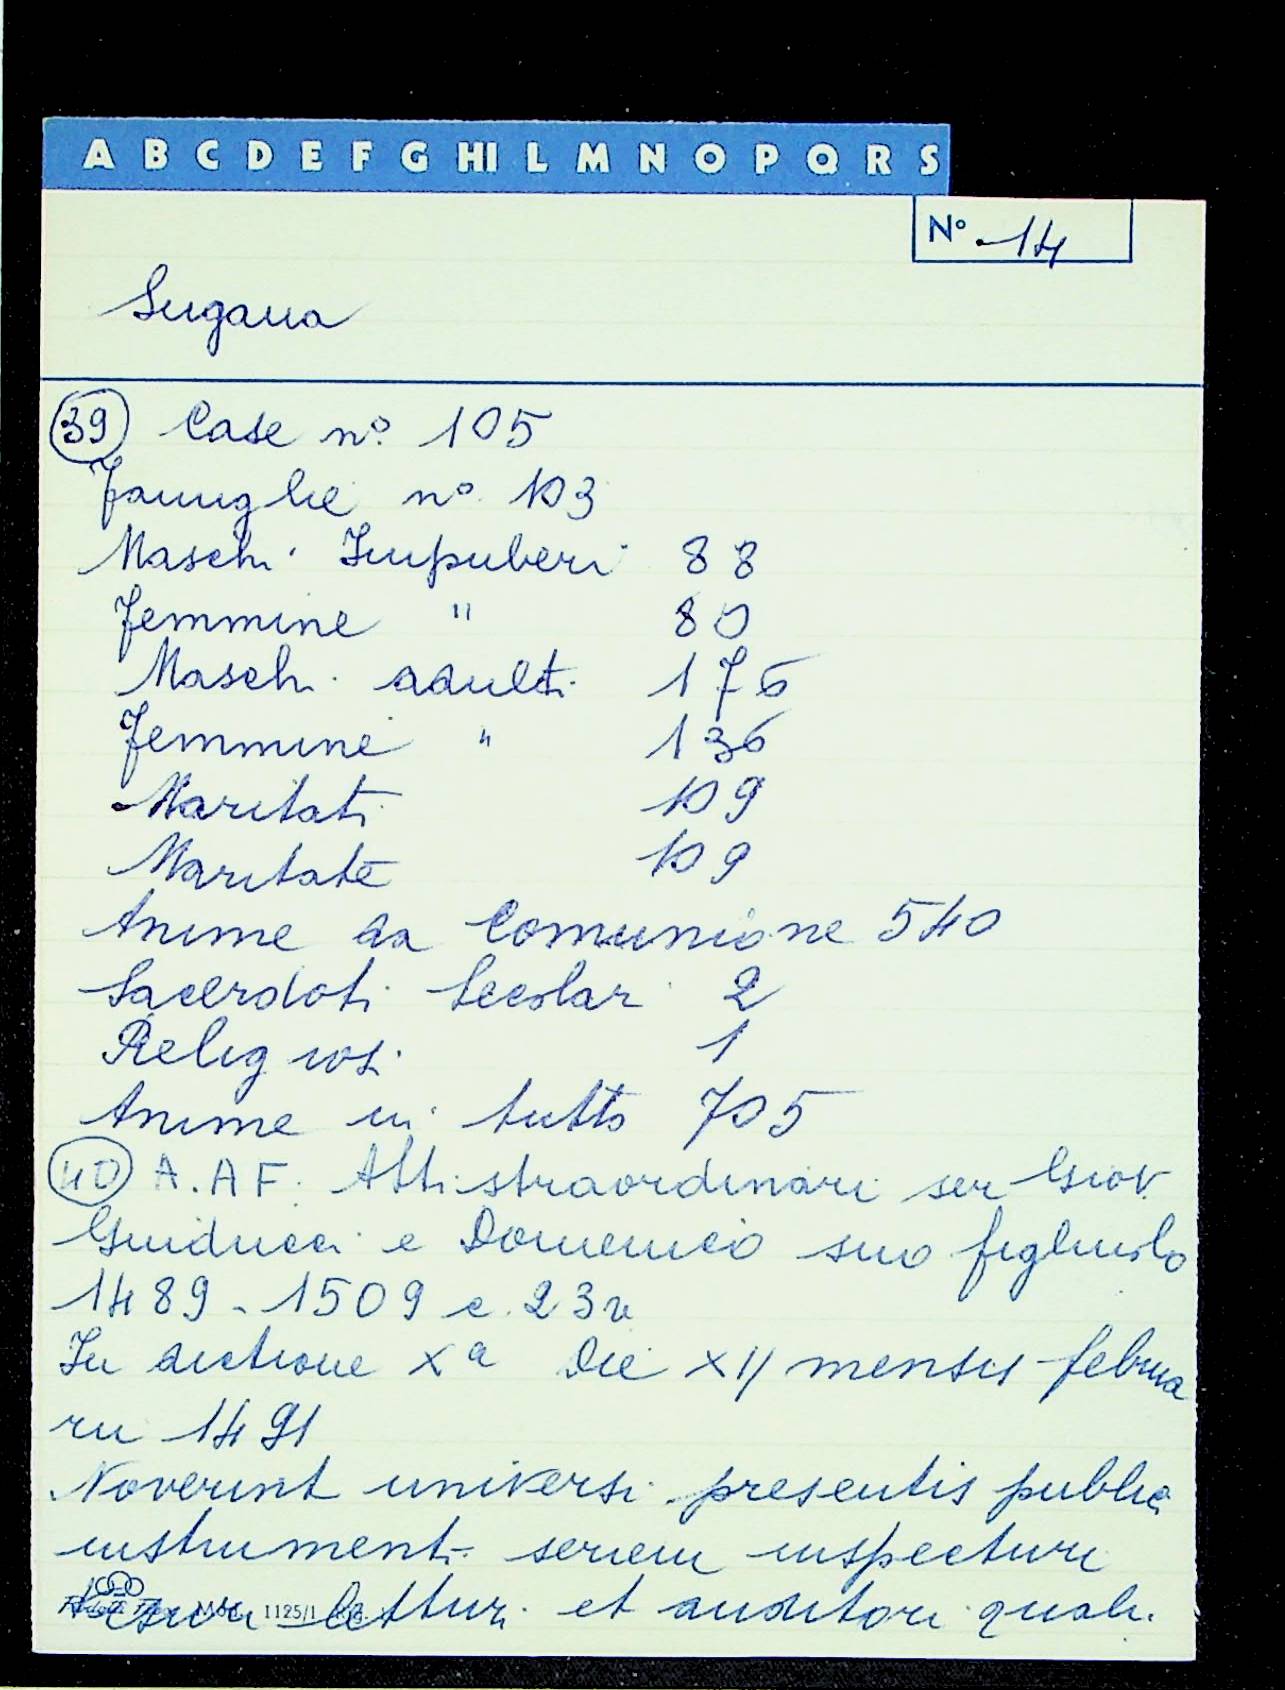 A B C D E F G HI L M N O P Q R S
N° 14
Sugana
39 Case n° 105
Famiglie n° 103
Maschi Impuberi 88
Femmine " 80
Maschi adulti 176
Femmine " 136
Maritati 109
Maritate 109
Anime da Comunione 540
Sacerdoti Secolari 2
Religiosi 1
Anime in tutto 705
40 A.AF. Atti straordinari ser Giov.
Guiducci e Domenico suo figliuolo
1489-1509 c. 23v
In dictione Xª Die XII mensis februa
rii 1491
Noverint universi presentis publici
instrumenti seriem inspecturi
lecturi et auditori quali
1125/1